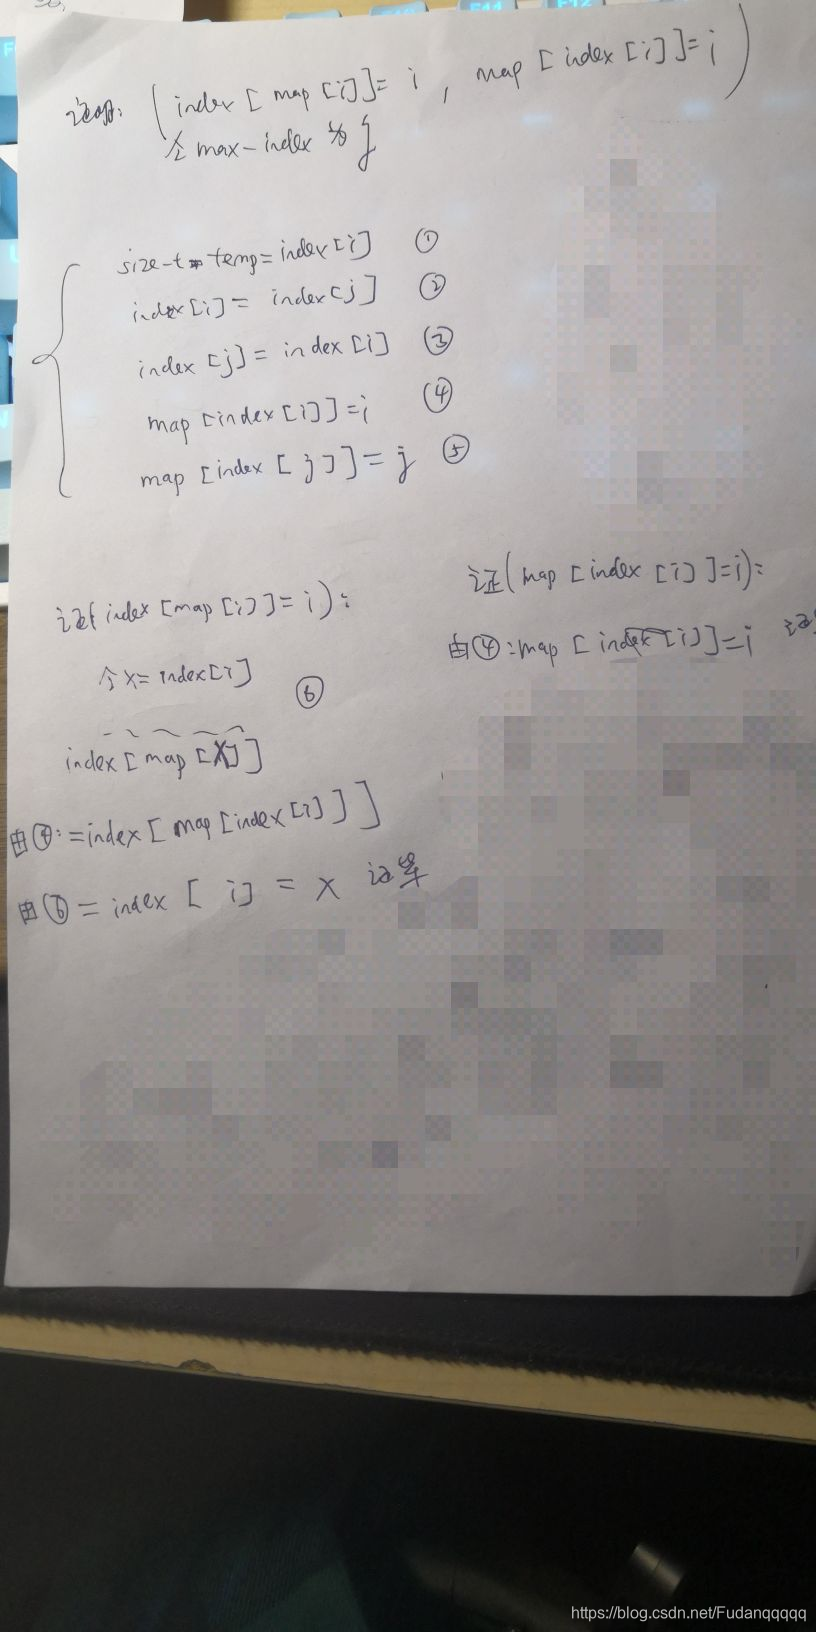 证明: (index[map[i]]=i, map[index[i]]=i)
令max-index为j
size-t temp=index[i] ①
index[i]=index[j] ②
index[j]=index[i] ③
map[index[i]]=i ④
map[index[j]]=j ⑤
证(index[map[i]]=i):
令x=index[i] ⑥
index[map[X]]
由④:=index[map[index[i]]]
由⑥=index[i]=x 证毕
证(map[index[i]]=i):
由④:map[index[i]]=i 证
F11
F12
https://blog.csdn.net/Fudanqqqqq